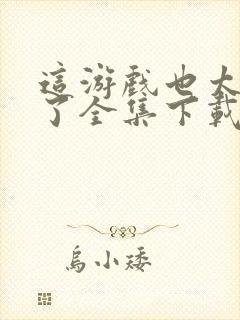 這游戲也太
了全集下載
烏小矮